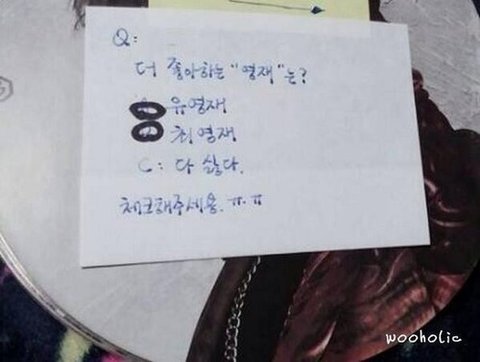 Q:
더 좋아하는 "영재"는?
유영재
최영재
C: 다 싫다.
체크해주세용.ㅠ.ㅠ
wooholic